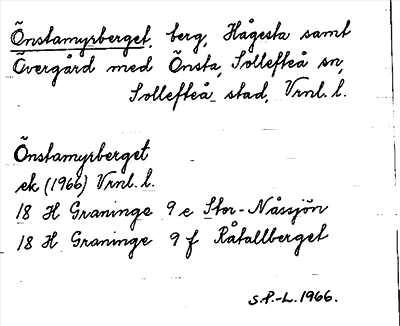 Önstamyrberget, berg, Hågesta samt
Övergård med Önsta, Sollefteå sn,
Sollefteå stad, Vrnl. l.
Önstamyrberget
ek (1966) Vrnl. l.
18 H Graninge 9 e Stor-Nässjön
18 H Graninge 9 f Råfallberget
S.P.-L. 1966.